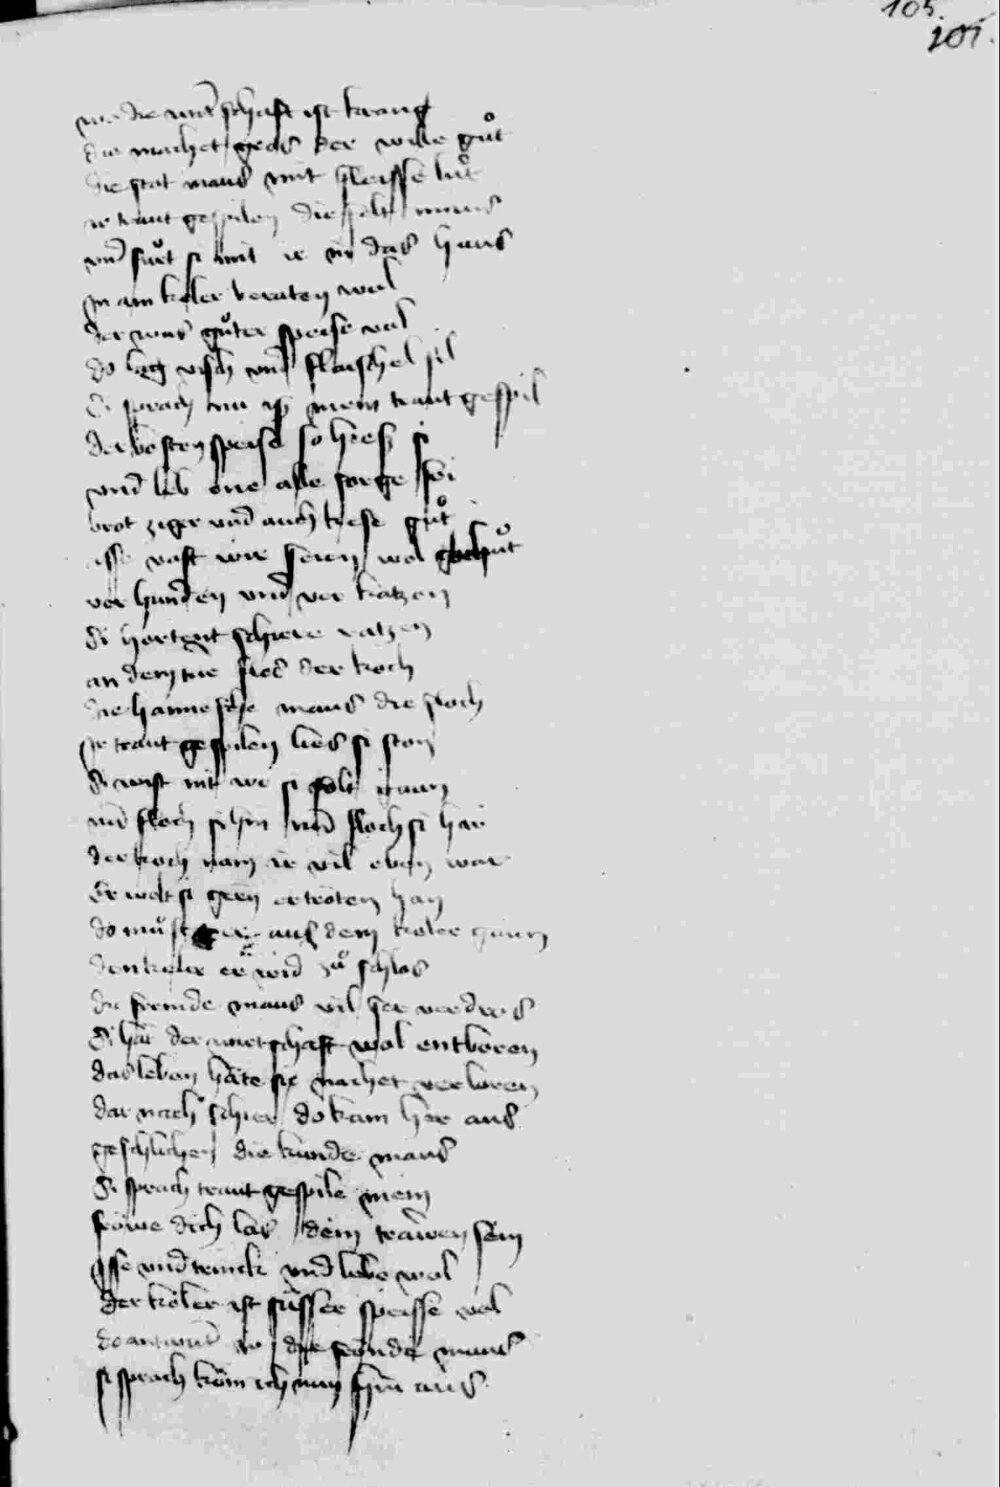 105.
101.
wa die wirtschaft ist krang
die machet gros der wille guͦt
die stat maus mit fleisse luͦt
ir traut gespilen die felt maus
vnd fuͦrt si mit ir in das haus
in ain keler beraten wol
der was guͦter speise vol
do lag visch vnd flaisches vil
Si sprach nu is mein traut gespil
der besten speise so hies si
vnd leb one alle sorge frei
brot ziger vnd auch kese guͦt
isse vast wir seien wol behuͦt
vor hunden vnd vor katzen
Si hortent schiere ratzen
an dem tue slos der koch
die haimesche maus die floch
ir traut gespilen lies si ston
Si wist nit wo si solt gaun
vnd floch si hin vnd floch si har
der koch nam ir vil eben war
Er wolt si gern ertöten han
do muͦst er aus dem keler gaun
den keler er wid zuͦ schlos
die fremde maus vil ser verdros
Si hät der wirtschaft wol entboren
das leben häte si nachet verloren
dar nach schier do kam her aus
geschlichen die kunde maus
Si sprach traut gespile mein
fröwe dich las dein trawen sein
Isse vnd trinck vnd lebe wol
der keler ist suͤsser speisse vol
do antwurt ir die frömde maus
si sprach köm ich nun hin aus